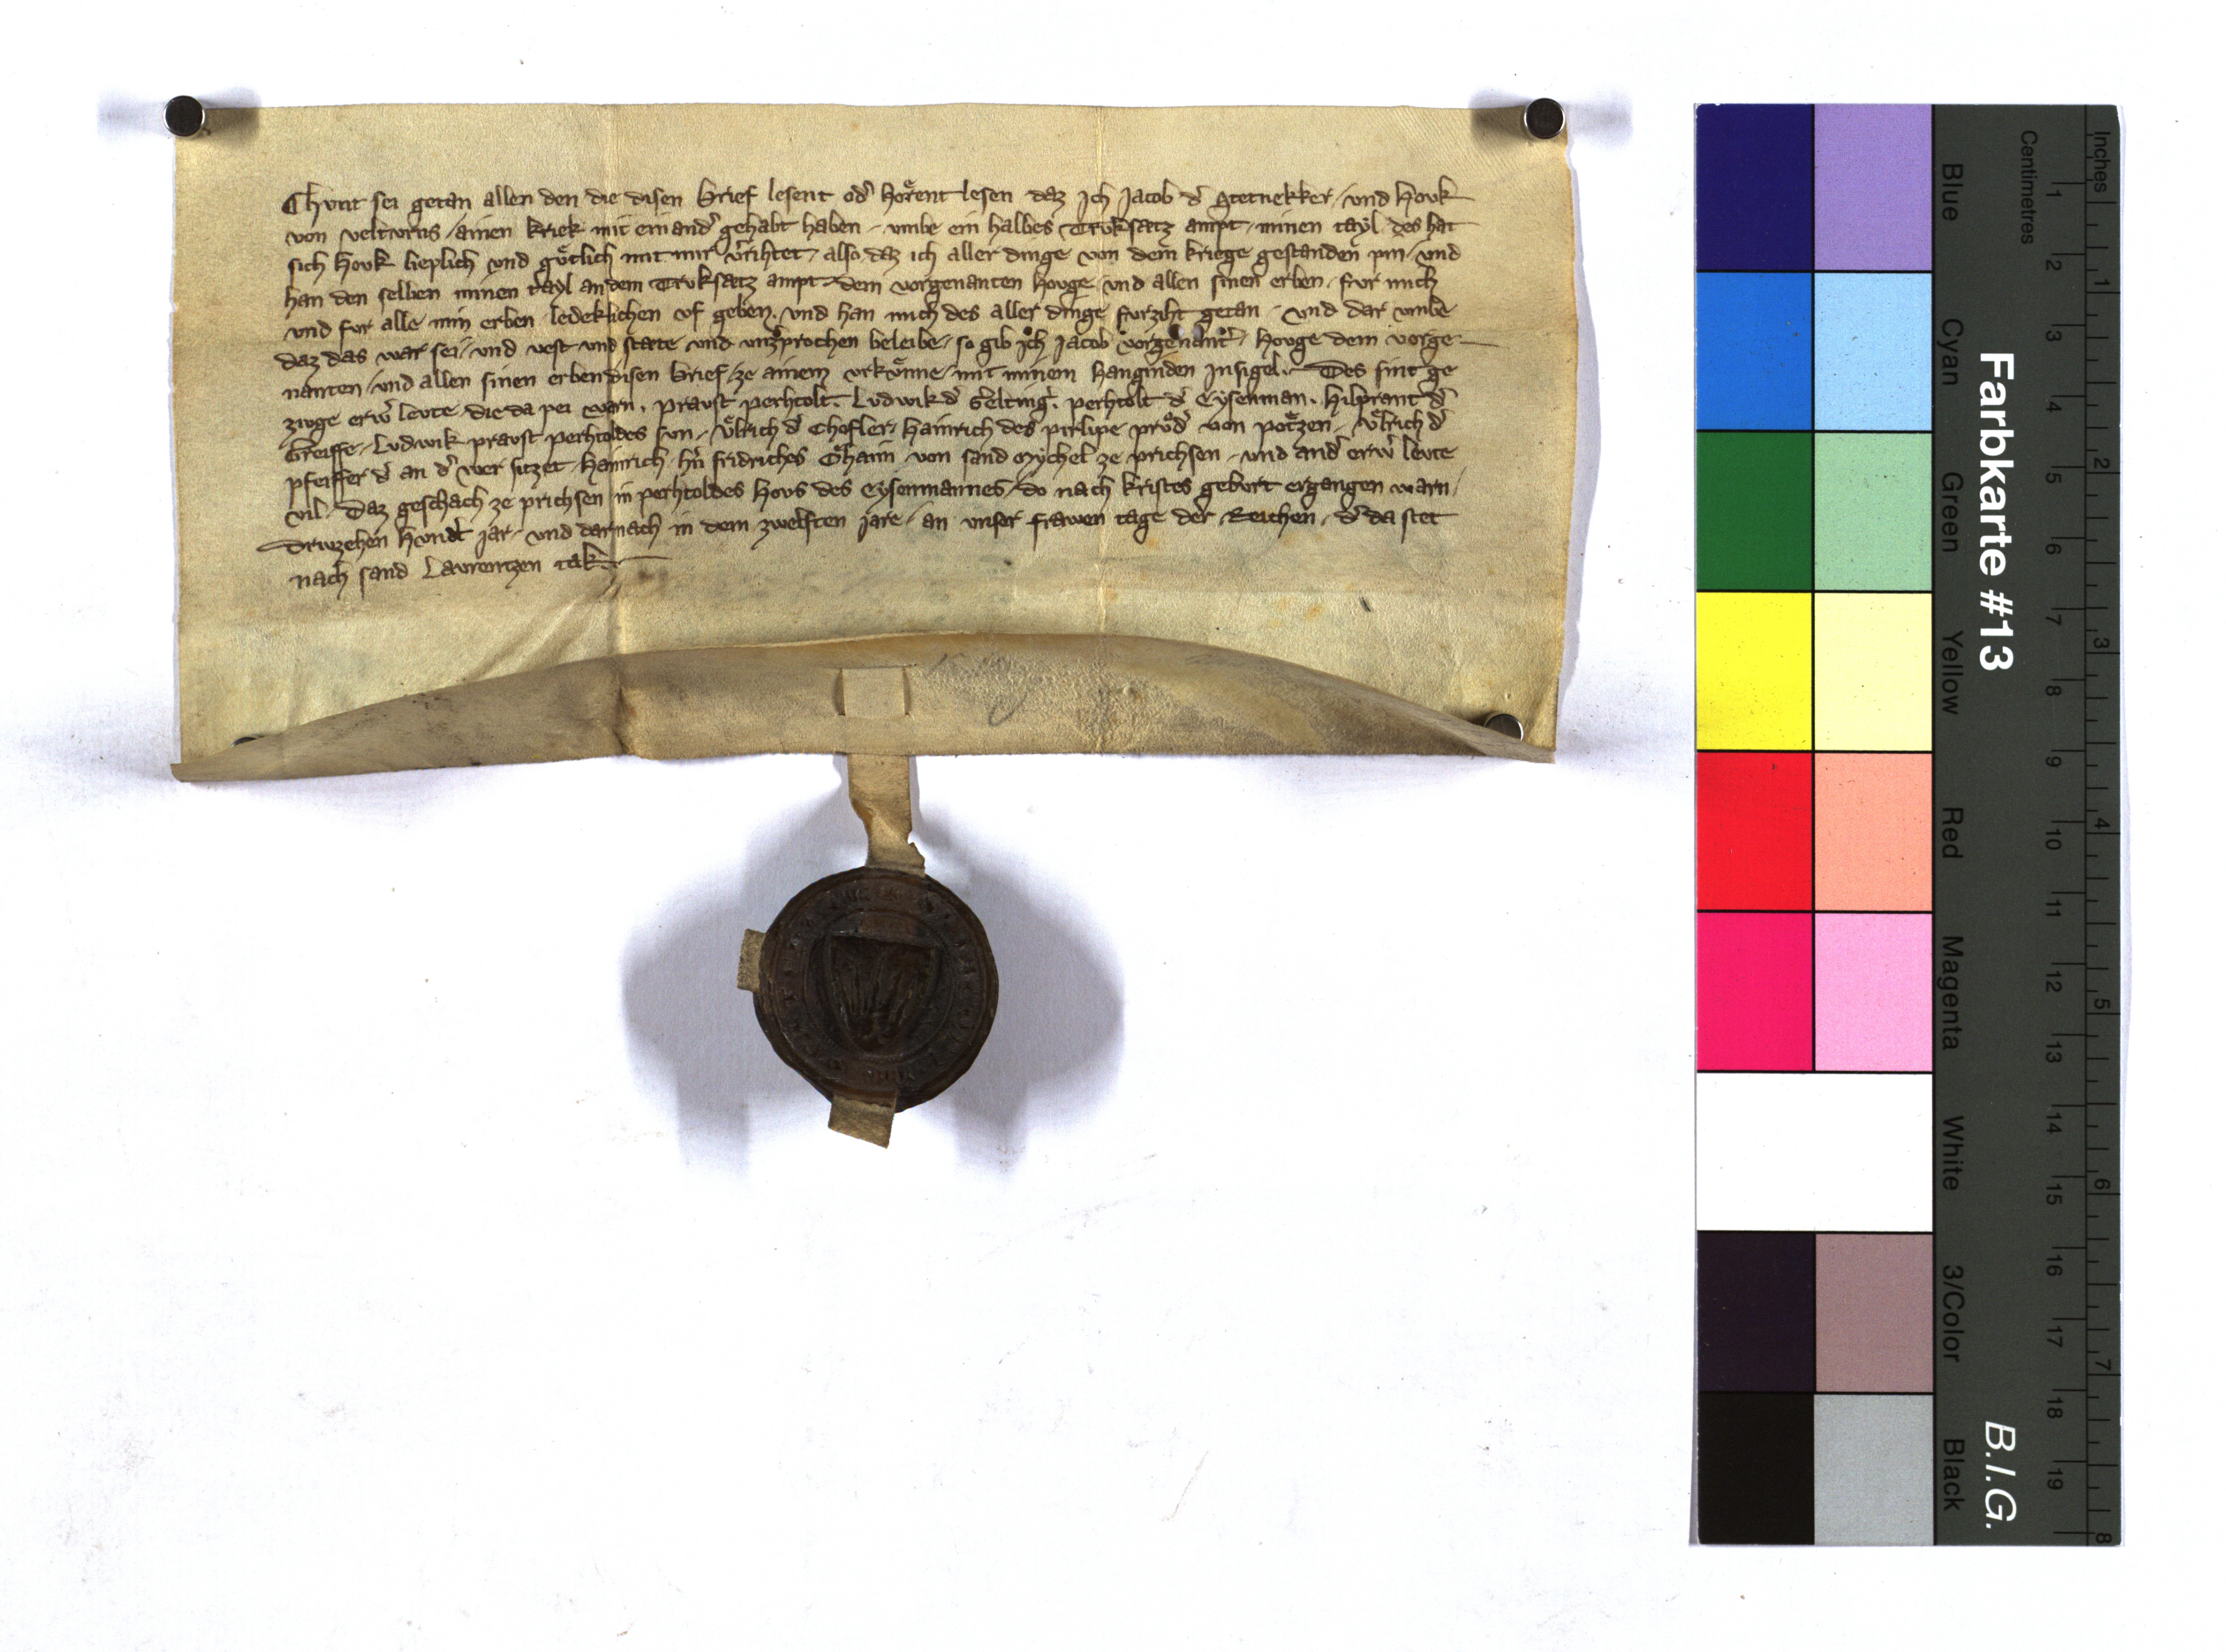 Chunt sei getan allen den die disen brief lesent od̕ horͤent lesen daz Jch Jacob d̕ Stetnekker / und Houk
von velturns / ainen kriek mit einand̕ gehabt haben / umbe ein halbes Truksatz ampt / minen tayl / des hat
sich Houk lieplich und guͤtlich mit mir v̕rihtet / also daz ich aller dinge von dem kriege gestanden pin / und
han den selben minen tayl an dem Truksatz ampt dem vorgenanten Houge und allen sinen erben / fur mich
und fur alle min erben ledeklichen uf geben . und han mich des aller dinge furziht getan / und dar umbe
daz das war sei / und vest und state und unz̕prochen beleibe / so gib ich Jacob vorgenant̕ / Houge dem vorge
nanten / und allen sinen erben disen brief / ze ainem urkuͤnne / mit minem hanginden Jnsigel . Des sint ge
zivge erw̕ levte die da pei warn . praust perhtolt . Ludwik d̕ Selting̕ . perhtolt d̕ Eysenman . hilprant d̕
Greiffe / Ludwik praust perhtoldes sun / uͤlrich d̕ Chofler / hainrich des purlipe pruͦd̕ von potzen / uͤlrich d̕
pfeiffer d̕ an d̕ wer sitzet / hainrich hn̄ fridriches Ohaim von sand Mychel ze prichsen / und and̕ erw̕ levte
vil / Daz geschach ze prichsen in perhtoldes hous des Eysenmannes / do nach kristes geburt ergangen warn /
Driuzehen hund̕t jar / und darnach in dem zwelften jare / an unser frawen tage der Reichen / d̕ da stet
nach sand Laurentzen tak
Farbkarte #13
B.I.G.
Blue
Cyan
Green
Yellow
Red
Magenta
White
3/Color
Black
Centimetres
1 2 3 4 5 6 7 8 9 10 11 12 13 14 15 16 17 18 19
Inches
1 2 3 4 5 6 7 8